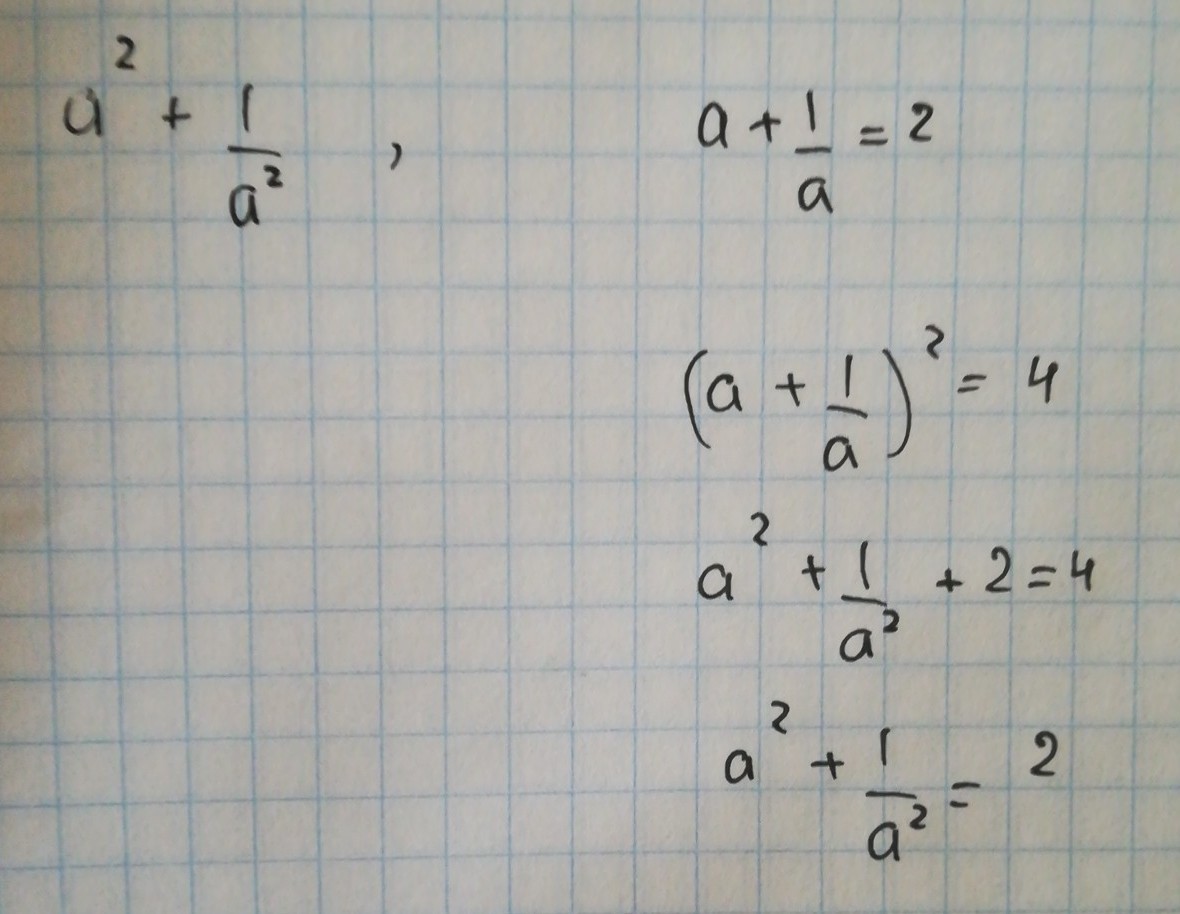 a² + 1/a² , a + 1/a = 2
(a + 1/a)² = 4
a² + 1/a² + 2 = 4
a² + 1/a² = 2